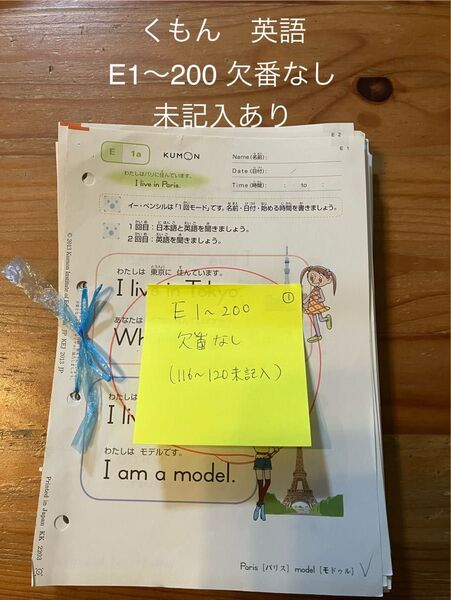 くもん 英語
E1〜200 欠番なし
未記入あり
E 2
E 1
E 1a KUMON Name(名前):
Date(日付) /
Time(時間): : to :
わたしはパリに住んでいます。
I live in Paris.
イー・ペンシルは「1回モード」です。名前・日付・始める時間を書きましょう。
1回目:日本語と英語を聞きましょう。
2回目:英語を聞きましょう。
わたしは 東京に 住んでいます。
I live in Tokyo.
あなたは
Wh
①
E1〜200
欠番なし
(116〜120未記入)
わたしは
I li
わたしは モデルです。
I am a model.
Paris [パリス] model [モドゥル]
Printed in Japan KK 2203